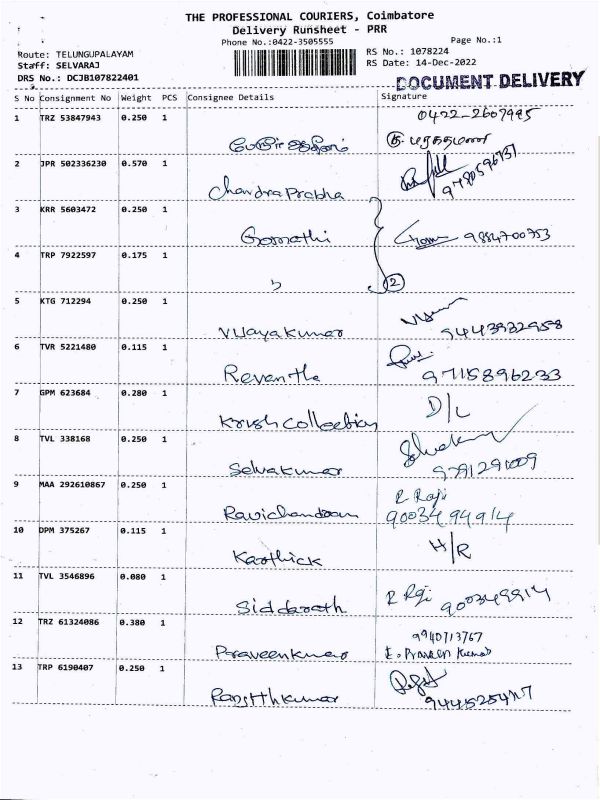 THE PROFESSIONAL COURIERS, Coimbatore
Delivery Runsheet - PRR
Phone No.:0422-3505555
Page No.:1
Route: TELUNGUPALAYAM
RS No.: 1078224
Staff: SELVARAJ
RS Date: 14-Dec-2022
DRS No.: DCJB107822401
DOCUMENT DELIVERY
S No Consignment No Weight PCS Consignee Details Signature
1 TRZ 53847943 0.250 1
0422-2607995
2 JPR 502336230 0.570 1
Chandra Prabha
3 KRR 5603472 0.250 1
Gomathi 9884700753
4 TRP 7922597 0.175 1
2
5 KTG 712294 0.250 1
Vijayakumar 9443932958
6 TVR 5221480 0.115 1
Revantha 97115896233
7 GPM 623684 0.280 1
Krish Collection D/L
8 TVL 338168 0.250 1
Selvakumar 9791291009
9 MAA 292610867 0.250 1
R Raji
Ravichandran 9003494914
10 DPM 375267 0.115 1
Karthick H/R
11 TVL 3546896 0.080 1
Siddarath R Raji
12 TRZ 61324086 0.380 1
9940713767
Praveenkumar Praveen Kumar
13 TRP 6190407 0.250 1
Ranjithkumar